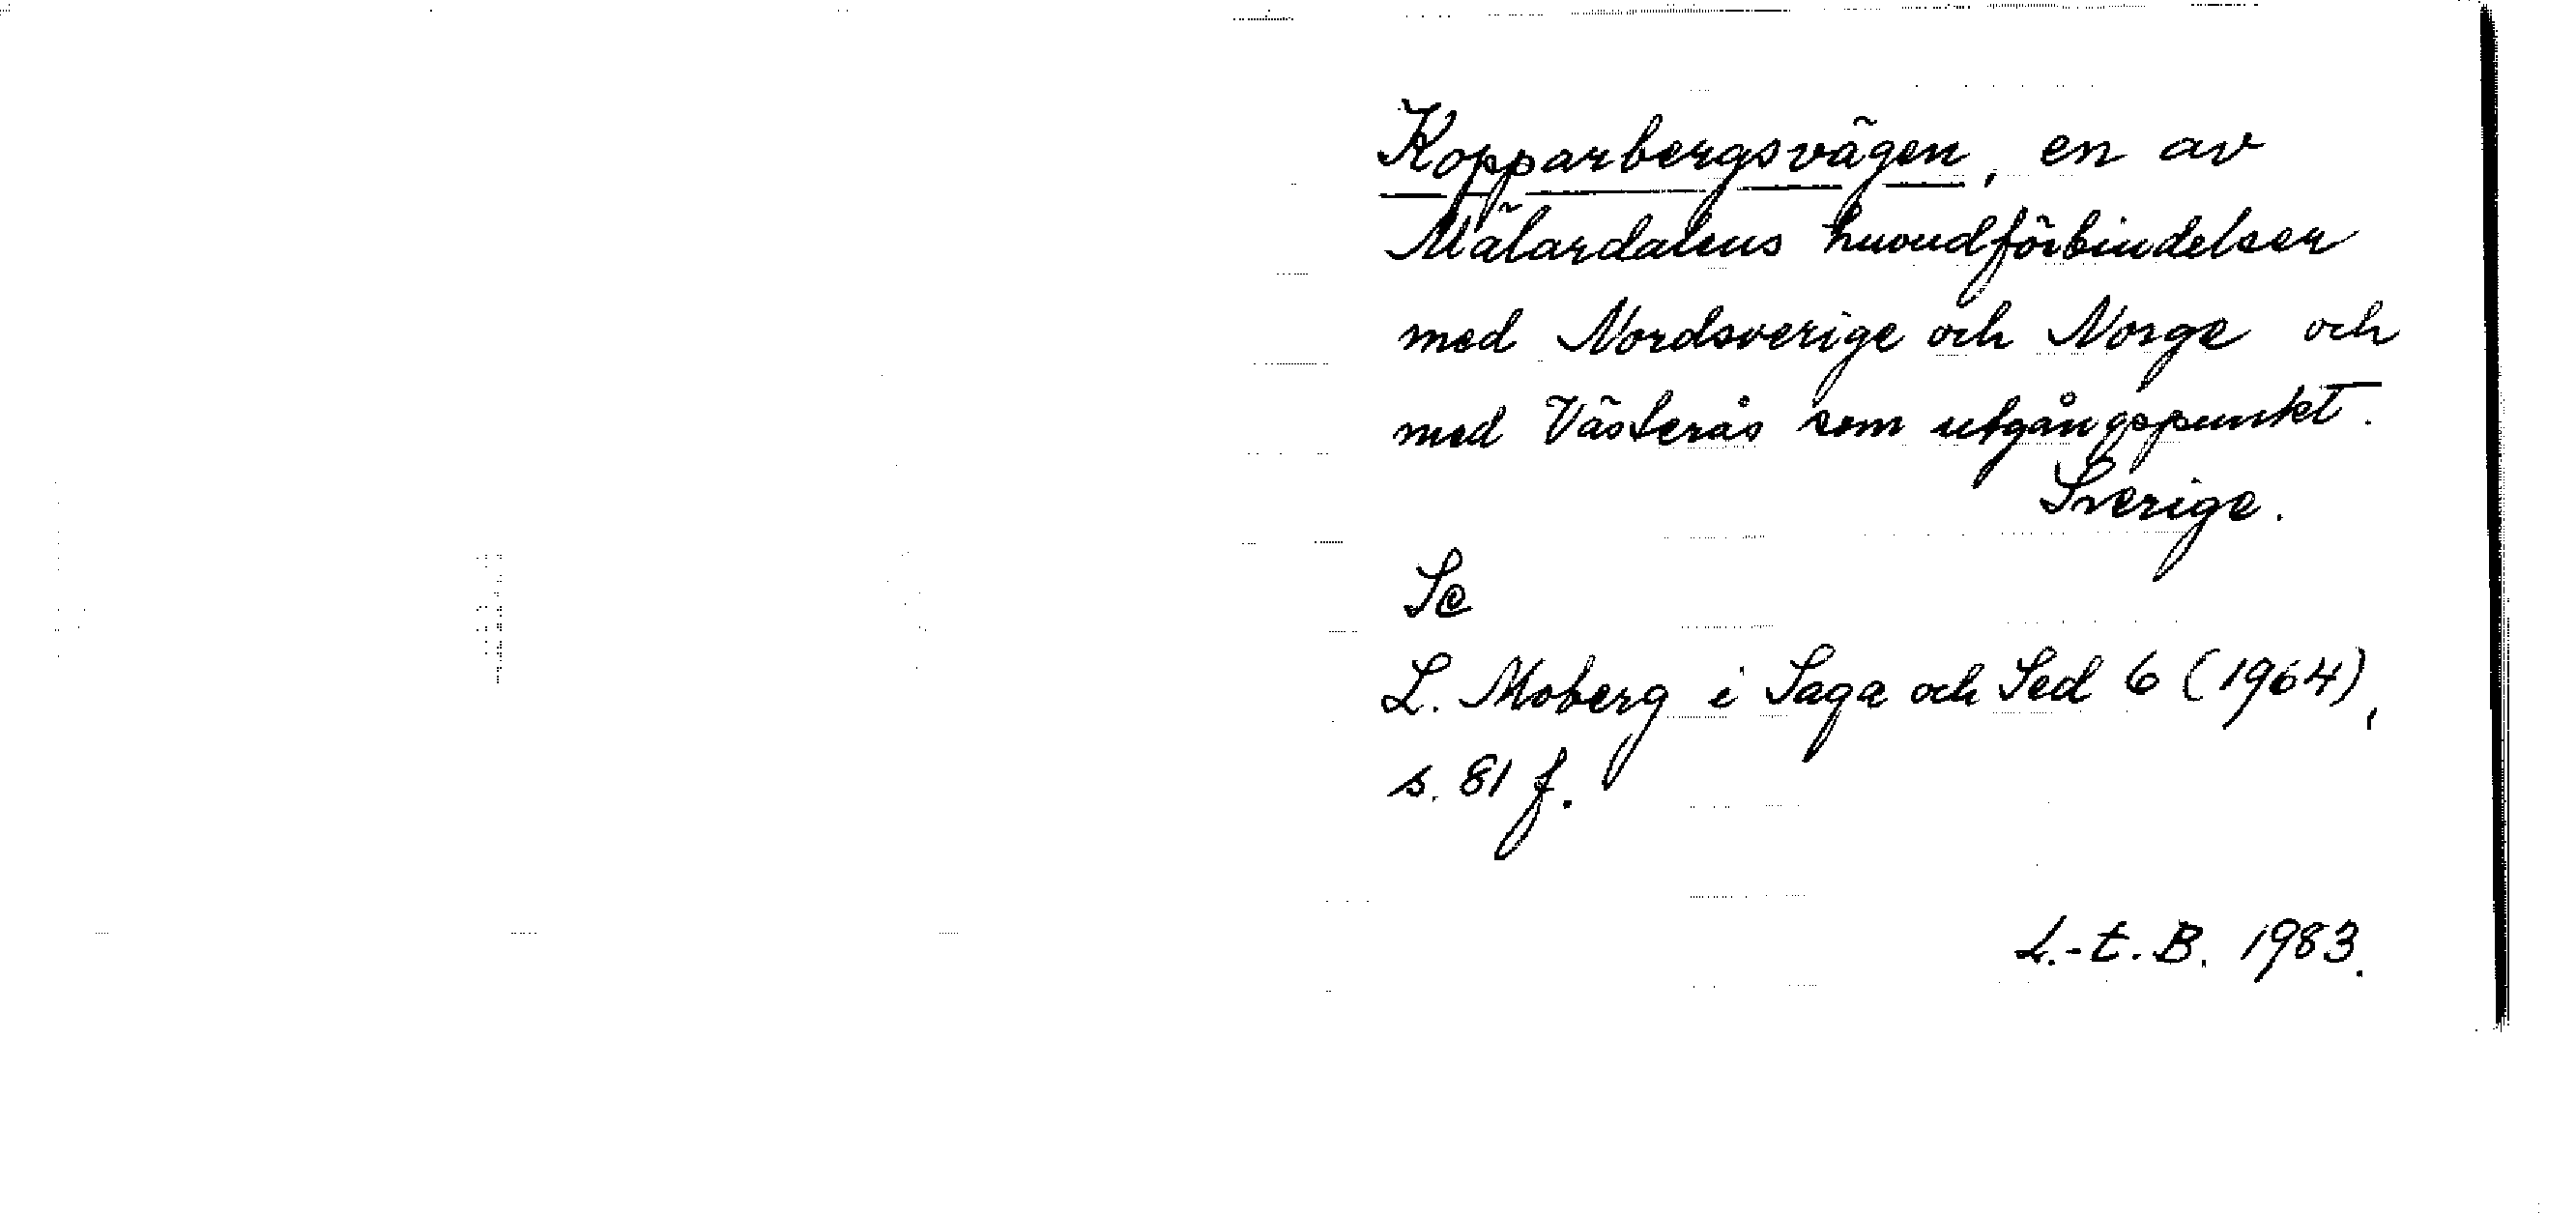 Kopparbergsvägen, en av
Mälardalens huvudförbindelser
med Nordsverige och Norge och
med Västerås som utgångspunkt.
Sverige.
Se
L. Moberg i Saga och Sed 6 (1964),
s. 81 f.
L.-t. B. 1983.